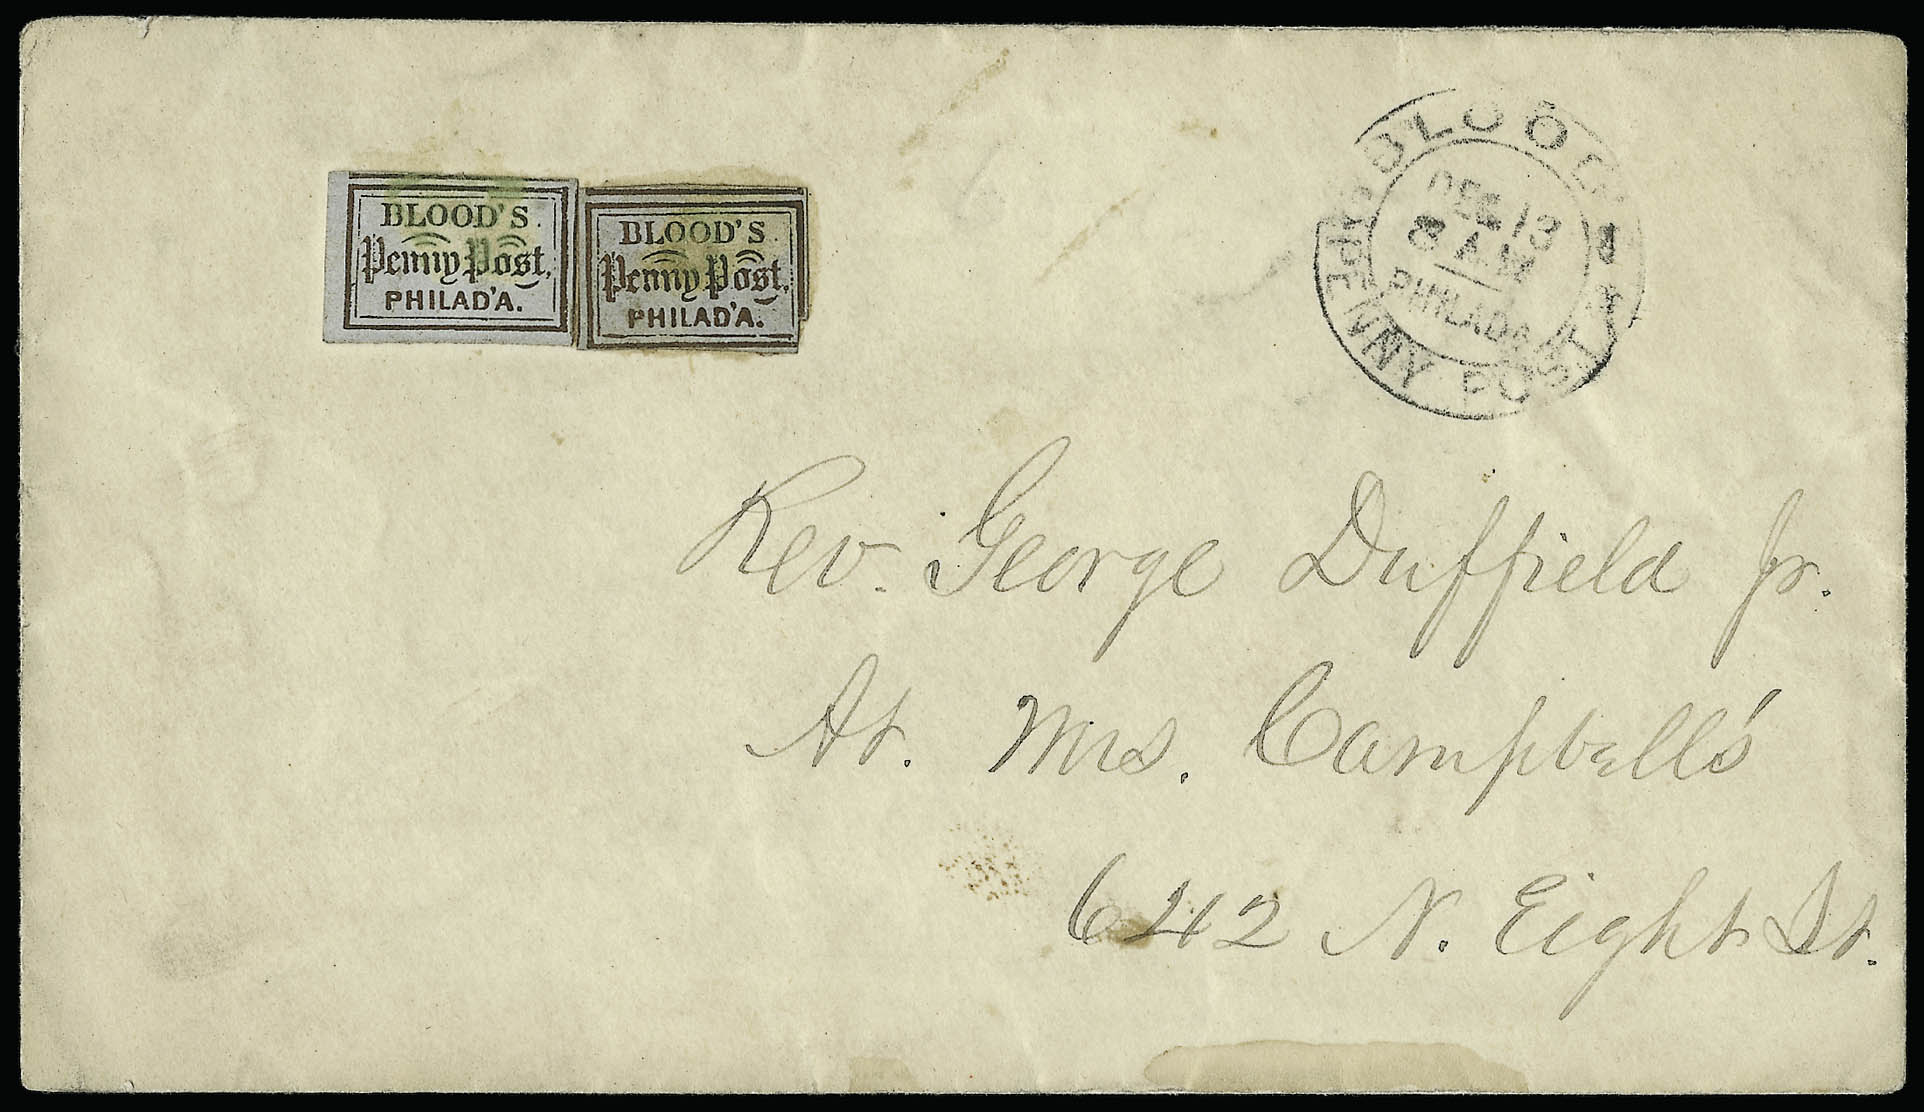 BLOOD'S
Penny Post,
PHILAD'A.
BLOOD'S
Penny Post,
PHILAD'A.
BLOOD'S
DEC 13
8 A.M
PHILADA
PENNY POST
Rev. George Duffield Jr.
At. Mrs. Campbell's
642 N. Eight St.